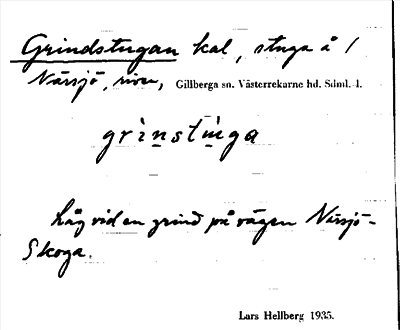 Grindstugan kal, stuga å /
Närsjö, riven, Gillberga sn. Västerrekarne hd. Sdml. 4.
grìnstùga
Låg vid en grind på vägen Närsjö-
Skoga.
Lars Hellberg 1935.